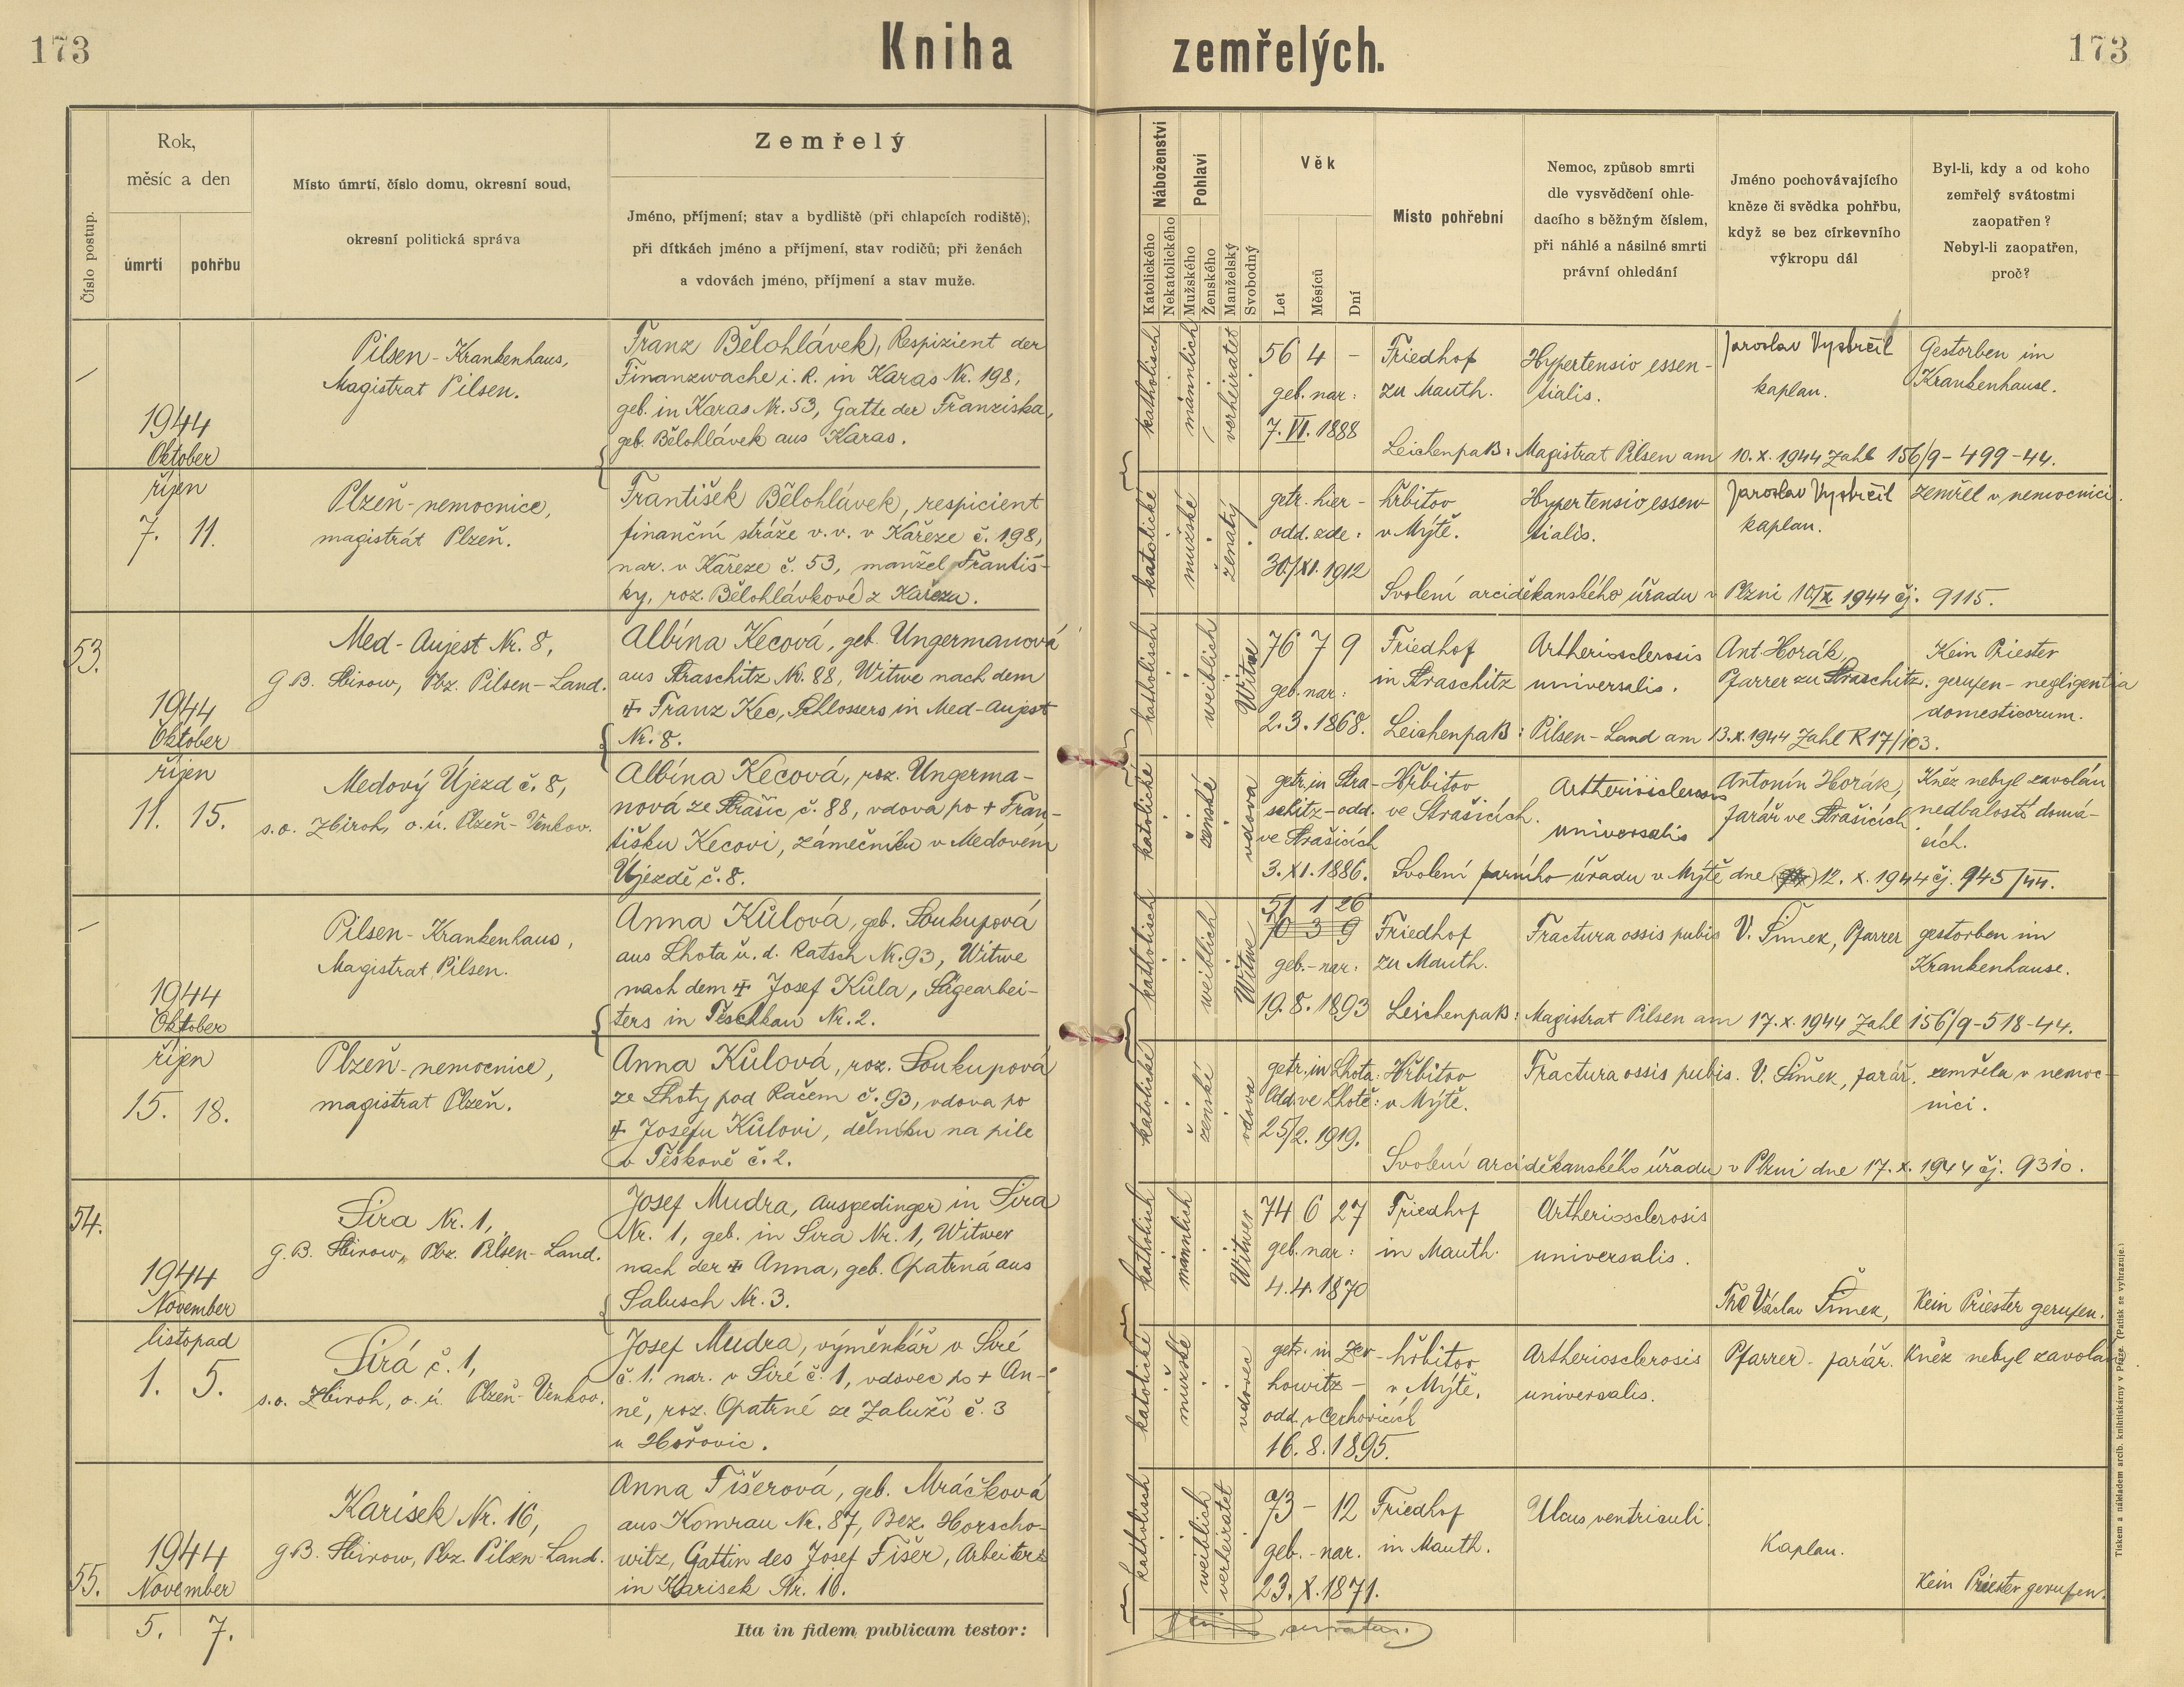 173
Kniha zemřelých.
173
Číslo postup.
Rok,
měsíc a den
úmrtí
pohřbu
Místo úmrtí, číslo domu, okresní soud,
okresní politická správa
Zemřelý
Jméno, příjmení; stav a bydliště (při chlapcích rodiště);
při dítkách jméno a příjmení, stav rodičů; při ženách
a vdovách jméno, příjmení a stav muže.
Náboženství
Katolického
Nekatolického
Pohlaví
Mužského
Ženského
Manželský
Svobodný
Věk
Let
Měsíců
Dní
Místo pohřební
Nemoc, způsob smrti
dle vysvědčení ohle-
dacího s běžným číslem,
při náhlé a násilné smrti
právní ohledání
Jméno pochovávajícího
kněze či svědka pohřbu,
když se bez církevního
výkropu dál
Byl-li, kdy a od koho
zemřelý svátostmi
zaopatřen?
Nebyl-li zaopatřen,
proč?
1944
Oktober
Pilsen - Krankenhaus,
Magistrat Pilsen.
Franz Bělohlávek, Respizient der
Finanzwache i. R. in Karas Nr. 198,
geb. in Karas Nr. 53, Gatte der Franziska,
geb. Bělohlávek aus Karas.
katholisch
männlich
verheiratet
56 4 -
geb. nar:
7. VI. 1888
Friedhof
zu Mauth.
Hypertensio essen-
tialis.
Jaroslav Vystrčil
kaplan.
Gestorben im
Krankenhause.
Leichenpaß: Magistrat Pilsen am 10. X. 1944 Zahl 156/9 - 499 - 44.
říjen
7. 11.
Plzeň - nemocnice,
magistrát Plzeň.
František Bělohlávek, respicient
finanční stráže v. v. v Kařeze č. 198,
nar. v Kařeze č. 53, manžel Františ-
ky, roz. Bělohlávkové z Kařeza.
katolické
mužské
ženatý
getr. hier -
odd. zde:
30./XI. 1912
hřbitov
v Mýtě.
Hypertensio essen-
tialis.
Jaroslav Vystrčil
kaplan.
zemřel v nemocnici.
Svolení arciděkanského úřadu v Plzni 10/X. 1944 čj. 9115.
53.
1944
Oktober
Med - Aujest Nr. 8,
G. B. Sbirow, Pbz. Pilsen - Land.
Albína Kecová, geb. Ungermanová
aus Straschitz Nr. 88, Witwe nach dem
✠ Franz Kec, Schlossers in Med-Aujest
Nr. 8.
katholisch
weiblich
Witwe
76 7 9
geb. nar:
2. 3. 1868.
Friedhof
in Straschitz
Artheriosclerosis
universalis.
Ant. Horák,
Pfarrer zu Straschitz.
Kein Priester
gerufen - negligentia
domesticorum.
Leichenpaß: Pilsen - Land am 13. X. 1944 Zahl R 17/103.
říjen
11. 15.
Medový Újezd č. 8,
s. o. Zbiroh, o. ú. Plzeň - Venkov.
Albína Kecová, roz. Ungerma-
nová ze Strašic č. 88, vdova po + Fran-
tišku Kecovi, zámečníku v Medovém
Újezdě č. 8.
katolické
ženské
vdova
getr. in Stra-
schitz - odd.
ve Strašicích
3. XI. 1886.
Hřbitov
ve Strašicích.
Artheriosclerosis
universalis
Antonín Horák,
farář ve Strašicích
Kněz nebyl zavolán
nedbalostí domá-
cích.
Svolení farního úřadu v Mýtě dne 12. X. 1944 čj. 945/44.
1944
Oktober
Pilsen - Krankenhaus,
Magistrat Pilsen.
Anna Kůlová, geb. Soukupová
aus Lhota u. d. Ratsch Nr. 93, Witwe
nach dem ✠ Josef Kůla, Sägearbei-
ters in Teschkau Nr. 2.
katholisch
weiblich
Witwe
51 1 26
70 3 9
geb. - nar:
19. 8. 1893
Friedhof
zu Mauth.
Fractura ossis pubis
V. Šimek, Pfarrer
gestorben im
Krankenhause.
Leichenpaß: Magistrat Pilsen am 17. X. 1944 Zahl 156/9 - 518 - 44.
říjen
15. 18.
Plzeň - nemocnice,
magistrat Plzeň.
Anna Kůlová, roz. Soukupová
ze Lhoty pod Račem č. 93, vdova po
✠ Josefu Kůlovi, dělníku na pile
v Těškově č. 2.
katolické
ženské
vdova
getr. in Lhota.
Odd. ve Lhotě:
25/2. 1919.
Hřbitov
v Mýtě.
Fractura ossis pubis.
V. Šimek, farář.
zemřela v nemoc-
nici.
Svolení arciděkanského úřadu v Plzni dne 17. X. 1944 čj. 9310.
54.
1944
November
Sira Nr. 1,
G. B. Sbirow, Pbz. Pilsen - Land.
Josef Mudra, Ausgedinger in Sira
Nr. 1, geb. in Sira Nr. 1, Witwer
nach der ✠ Anna, geb. Opatrná aus
Salusch Nr. 3.
katholisch
männlich
Witwer
74 6 27
geb. nar:
4. 4. 1870
Friedhof
in Mauth.
Artheriosclerosis
universalis.
Václav Šimek,
Kein Priester gerufen.
listopad
1. 5.
Sirá č. 1,
s. o. Zbiroh, o. ú. Plzeň - Venkov.
Josef Mudra, výměnkář v Siré
č. 1. nar. v Siré č. 1, vdovec po + An-
ně, roz. Opatrné ze Zaluží č. 3
u Hořovic.
katolické
mužské
vdovec
getr. in Zer-
howitz -
odd. v Cerhovicích
16. 8. 1895.
hřbitov
v Mýtě.
Artheriosclerosis
universalis.
Pfarrer - farář.
Kněz nebyl zavolán.
55.
1944
November
5. 7.
Karisek Nr. 16,
G. B. Sbirow, Pbz. Pilsen - Land.
Anna Fišerová, geb. Mráčková
aus Komrau Nr. 87, Bez. Horscho-
witz, Gattin des Josef Fišer, Arbeiters
in Karisek Nr. 16.
katholisch
weiblich
verheiratet
73 - 12
geb. - nar.
23. X. 1871.
Friedhof
in Mauth.
Ulcus ventriculi.
Kaplan.
Kein Priester gerufen.
Ita in fidem publicam testor:
Tiskem a nákladem arcib. knihtiskárny v Praze. (Patisk se vyhrazuje.)